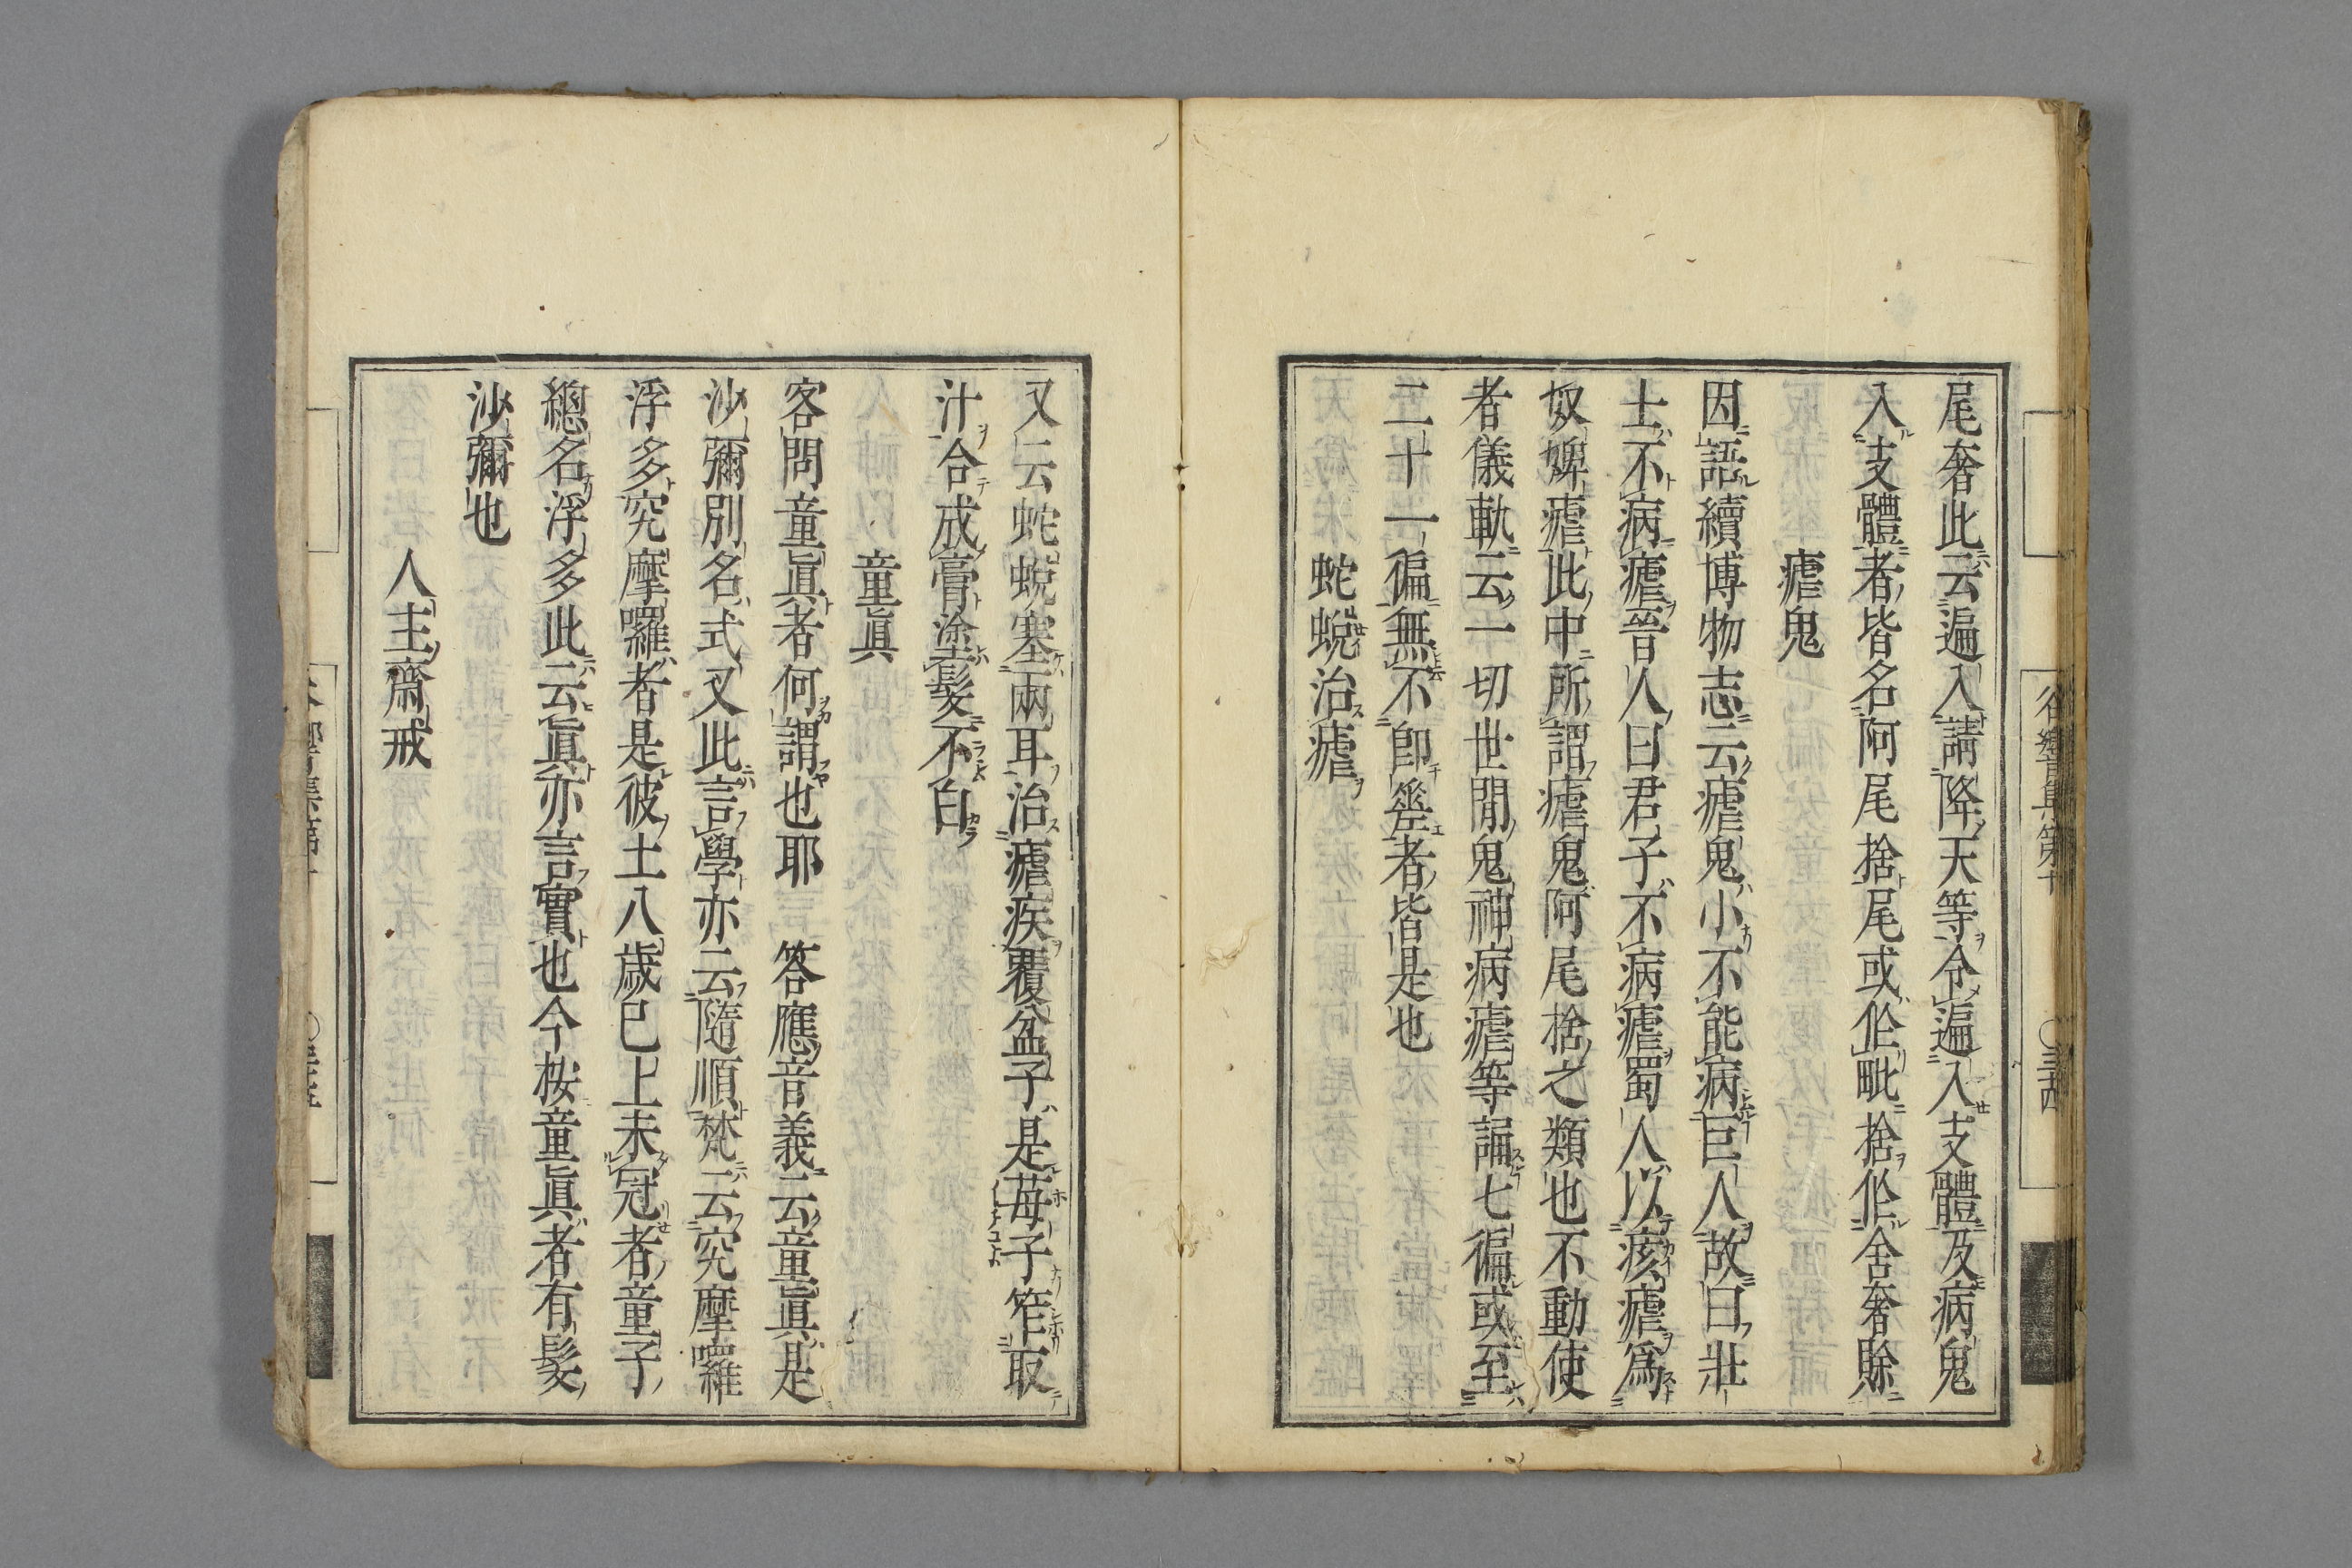 尾奢此云遍入請降天等令遍入支體及病鬼
入支體者皆名阿尾捨尾或伱毗捨伱舍奢賖
瘧鬼
因語續博物志云瘧鬼小不能病巨人故曰壯
士不病瘧晉人曰君子不病瘧蜀人以痎瘧爲
奴婢瘧此中所謂瘧鬼阿尾捨之類也不動使
者儀軌云一切世閒鬼神病瘧等誦七徧或至
二十一徧無不卽差者皆是也
蛇蛻治瘧
又云蛇蛻塞兩耳治瘧疾覆盆子是苺子笮取
汁合成膏塗髮不白
童眞
客問童眞者何謂也耶 答應音義云童眞是
沙彌別名式叉此言學亦云隨順梵云究摩囉
浮多究摩囉者是彼土八歲已上未冠者童子
總名浮多此云眞亦言實也今桉童眞者有髮
沙彌也
人主齋戒
谷響集第十
〇三十四